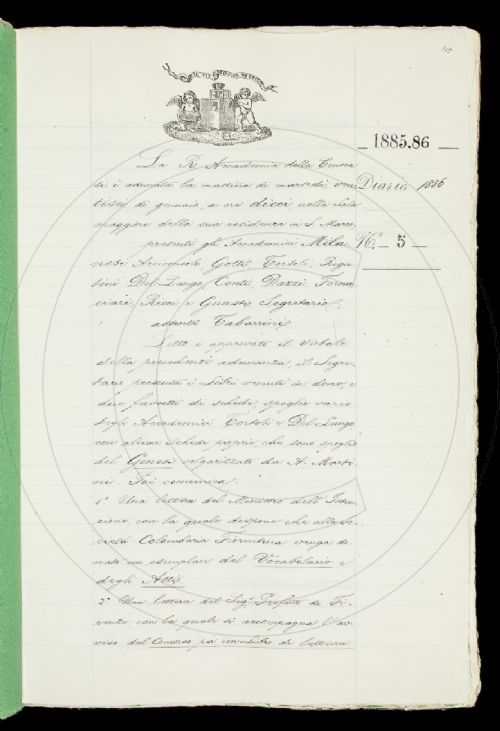 IL PIÙ BEL FIOR NE COGLIE
1885.86
Diario 1886
N.° 5
La R. Accademia della Crusca
si è adunata la mattina di martedì ven
tisei di gennaio, a ore dieci nella sala
maggiore della sua residenza in S. Marco,
presenti gli Accademici Mila
nesi Arciconsolo Gotti Tortoli, Riga
tini, Del Lungo, Conti, Dazzi, Forna
ciari Ricci e Guasti Segretario;
assente Tabarrini
Letto e approvato il verbale
della precedente adunanza, il Segre
tario presenta i Libri venuti in dono, e
due fascetti di schede, spoglio vario
degli Accademici Tortoli e Del Lungo
con alcune schede proprie che sono spoglio
del Genesi volgarizzato da A. Marti
ni. Poi comunica:
1.° Una lettera del Ministro dell'Istru
zione, con la quale dispone che alla So
cietà Colombaria Fiorentina venga do
nato un esemplare del Vocabolario e
degli Atti.
2.° Una lettera del Sig. Prefetto di Fi
renze, con la quale si accompagna l'av
viso del Concorso per un Libro di lettura